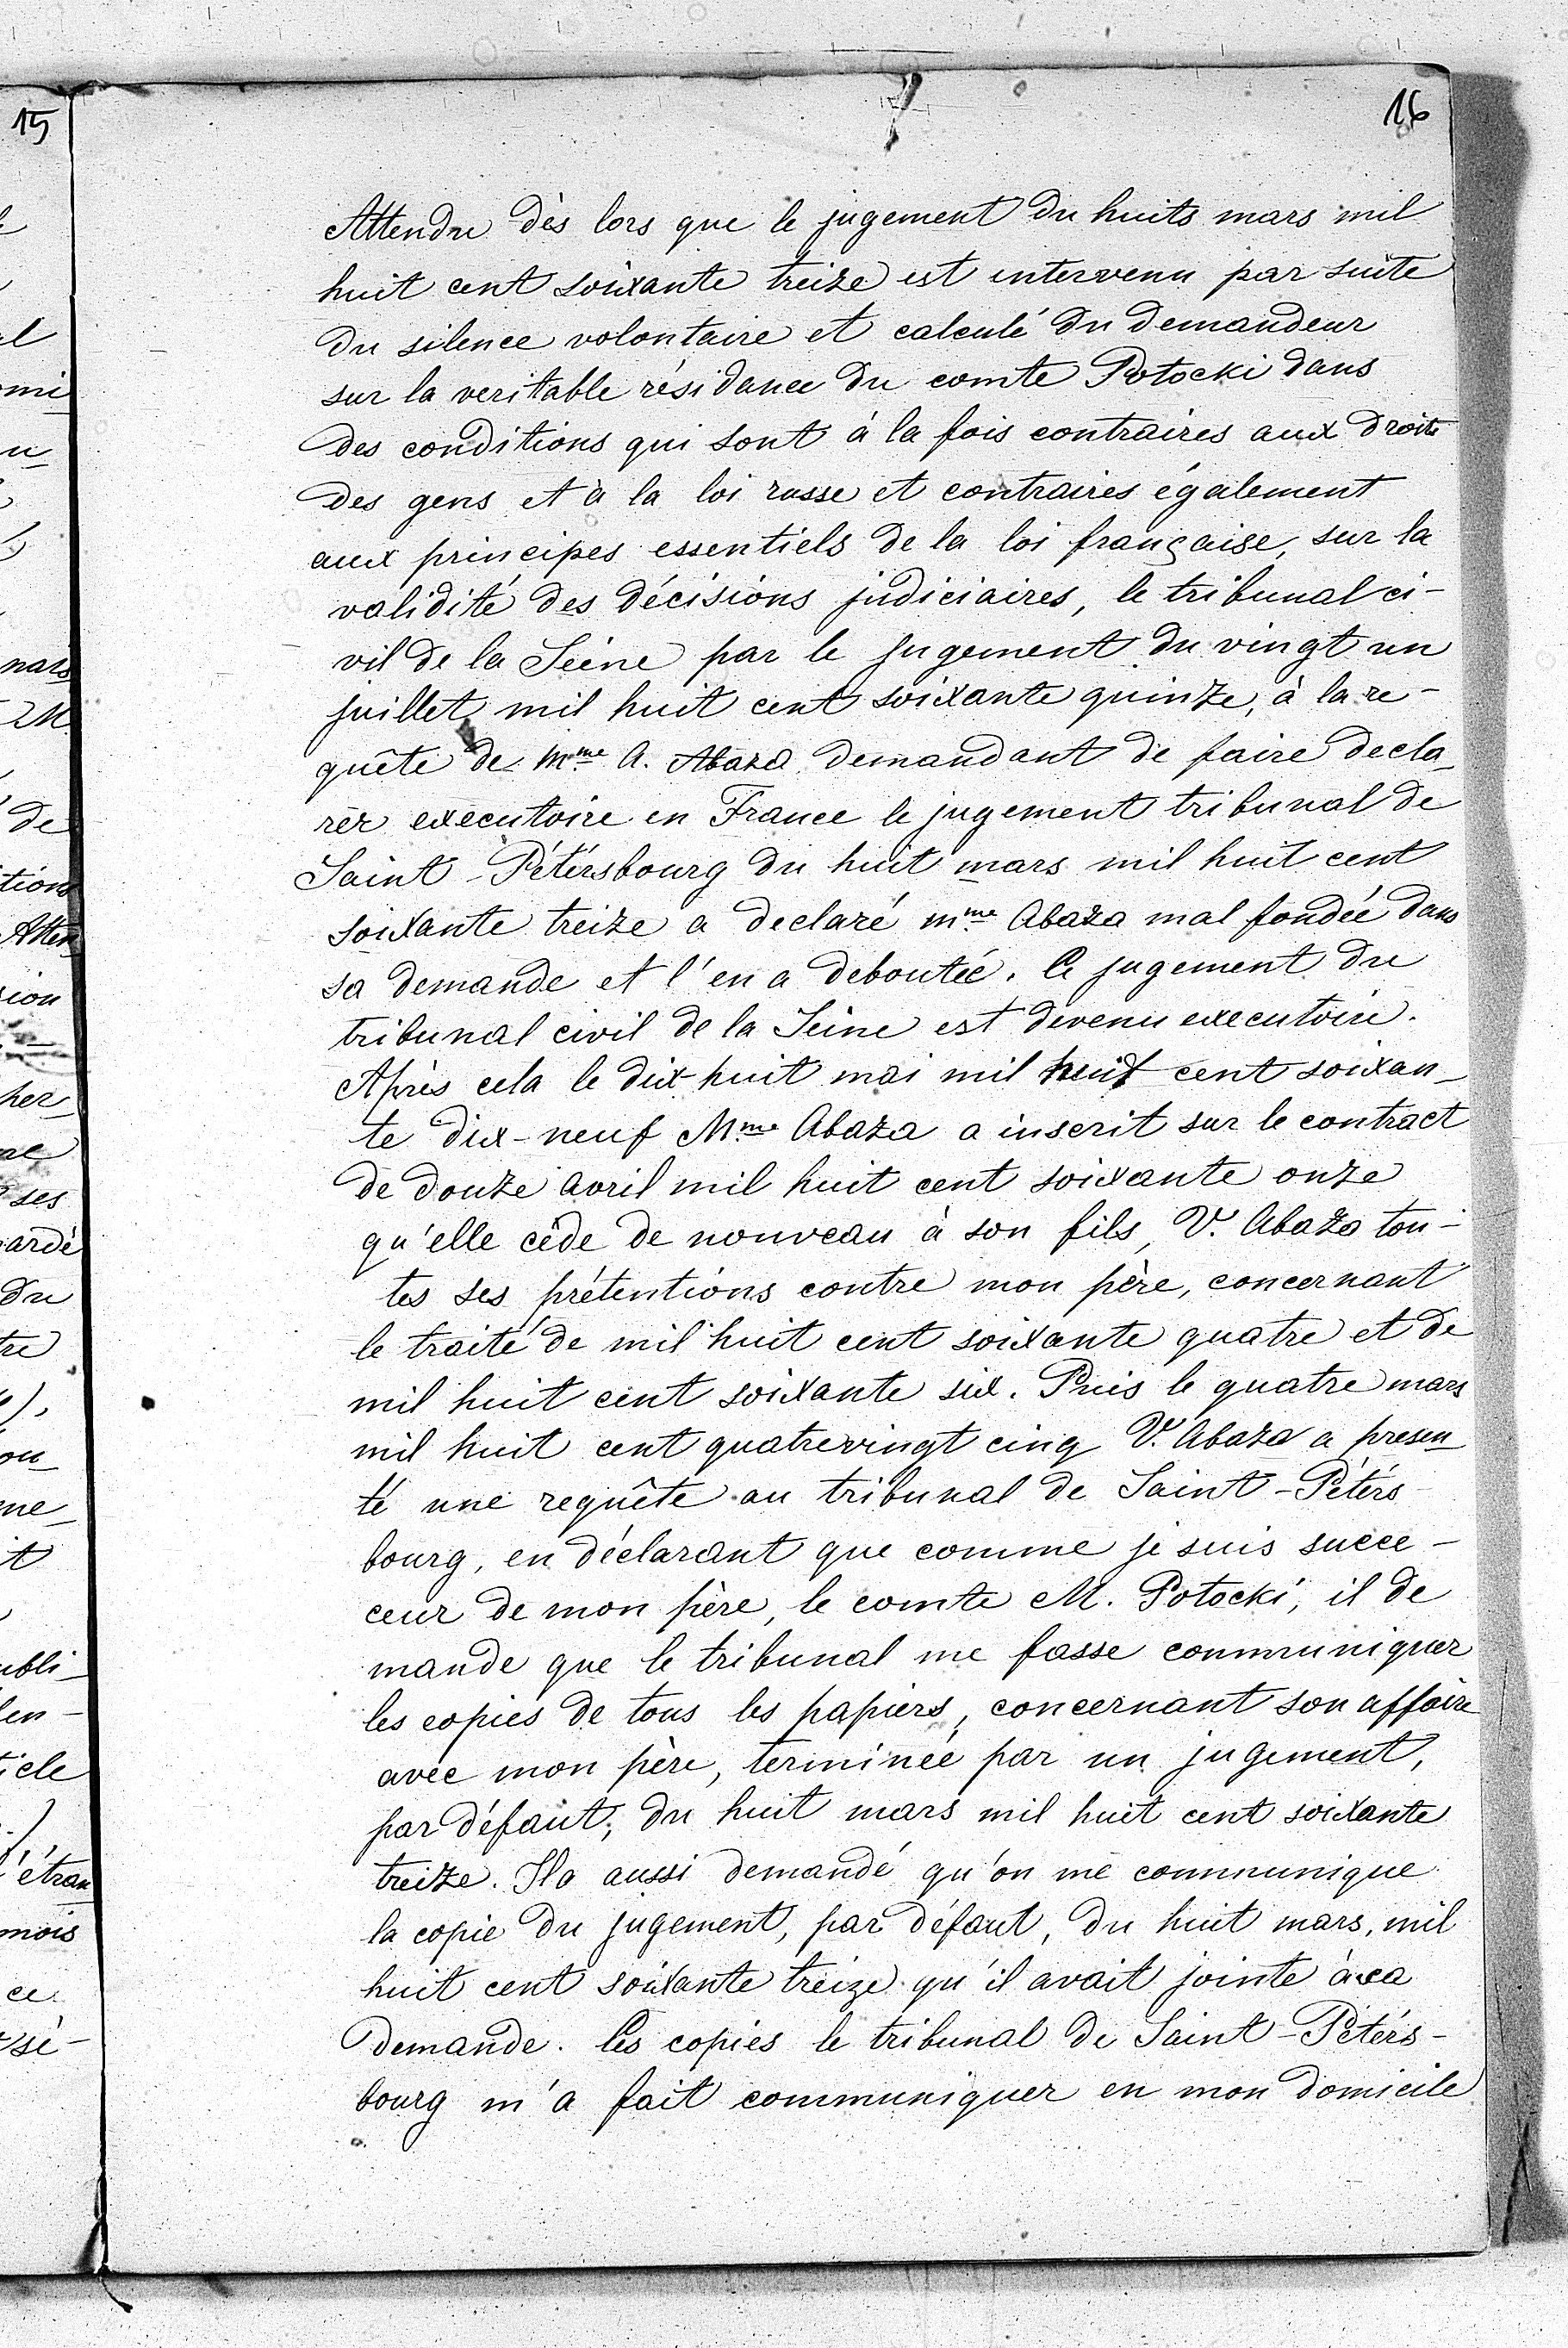 15
16
Attendu dès lors que le jugement du huits mars mil
huit cent soixante treize est intervenu par suite
du silence volontaire et calculé du demandeur
sur la veritable résidance du comte Potocki dans
des conditions qui sont à la fois contraires aux droits
des gens et à la loi russe et contraires également
aux principes essentiels de la loi française, sur la
validité des décisions judiciaires, le tribunal ci-
vil de la Seine par le jugement du vingt un
juillet mil huit cent soixante quinze, à la re-
quête de Mme A. Abaza demandant de faire decla-
rer executoire en France le jugement tribunal de
Saint-Pétérsbourg du huit mars mil huit cent
soixante treize a declaré mme Abaza mal fondée dans
sa demande et l'en a deboutée. Ce jugement du
tribunal civil de la Seine est devenu executoire.
Après cela le dix-huit mai mil huit cent soixan-
te dix-neuf Mme Abaza a inscrit sur le contract
de douze avril mil huit cent soixante onze
qu'elle cède de nouveau à son fils, V. Abaza tou-
tes ses prétentions contre mon père, concernant
le traité de mil huit cent soixante quatre et de
mil huit cent soixante six. Puis le quatre mars
mil huit cent quatrevingt cinq V. Abaza a presen-
té une requête au tribunal de Saint-Pétérs-
bourg, en déclarant que comme je suis succe-
ceur de mon père, le comte M. Potocki, il de
mande que le tribunal me fasse communiquer
les copies de tous les papiers, concernant son affaire
avec mon père, terminée par un jugement,
par défaut, du huit mars mil huit cent soixante
treize. Il a aussi demandé qu'on me communique
la copie du jugement, par défaut, du huit mars, mil
huit cent soixante treize qu'il avait jointe à ca
demande. Ces copies le tribunal de Saint-Pétérs-
bourg m'a fait communiquer en mon domicile